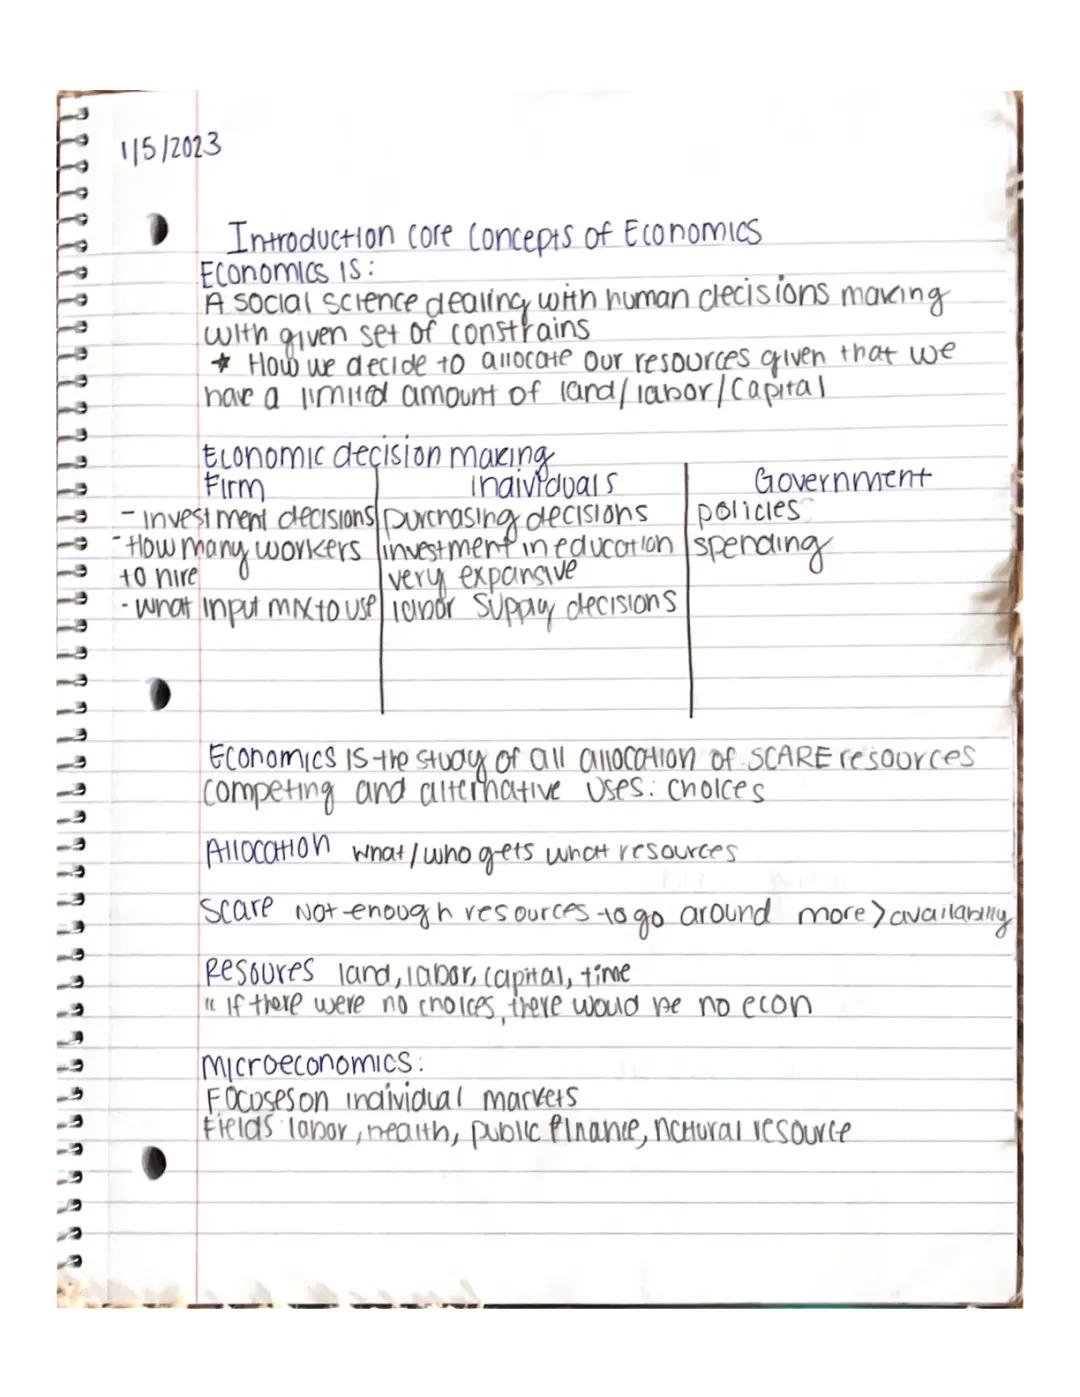 1/5/2023
Introduction core concepts of Economics
Economics is:
A social science dealing with human decisions making
with given set of constrains
* How we decide to allocate our resources given that we
have a limited amount of land/labor/Capital
Economic decision making
Firm individuals Government
- investment decisions purchasing decisions policies
- How many workers investment in education spending
to hire very expansive
- what input mix to use labor supply decisions
Economics is the study of all allocation of SCARE resources
competing and alternative uses: choices
Allocation what/who gets what resources
Scare Not enough resources to go around more > availabilly
Resoures land, labor, capital, time
" If there were no choices, there would be no econ
Microeconomics:
Focuses on individual markets
Fields: labor, health, public finance, natural resource